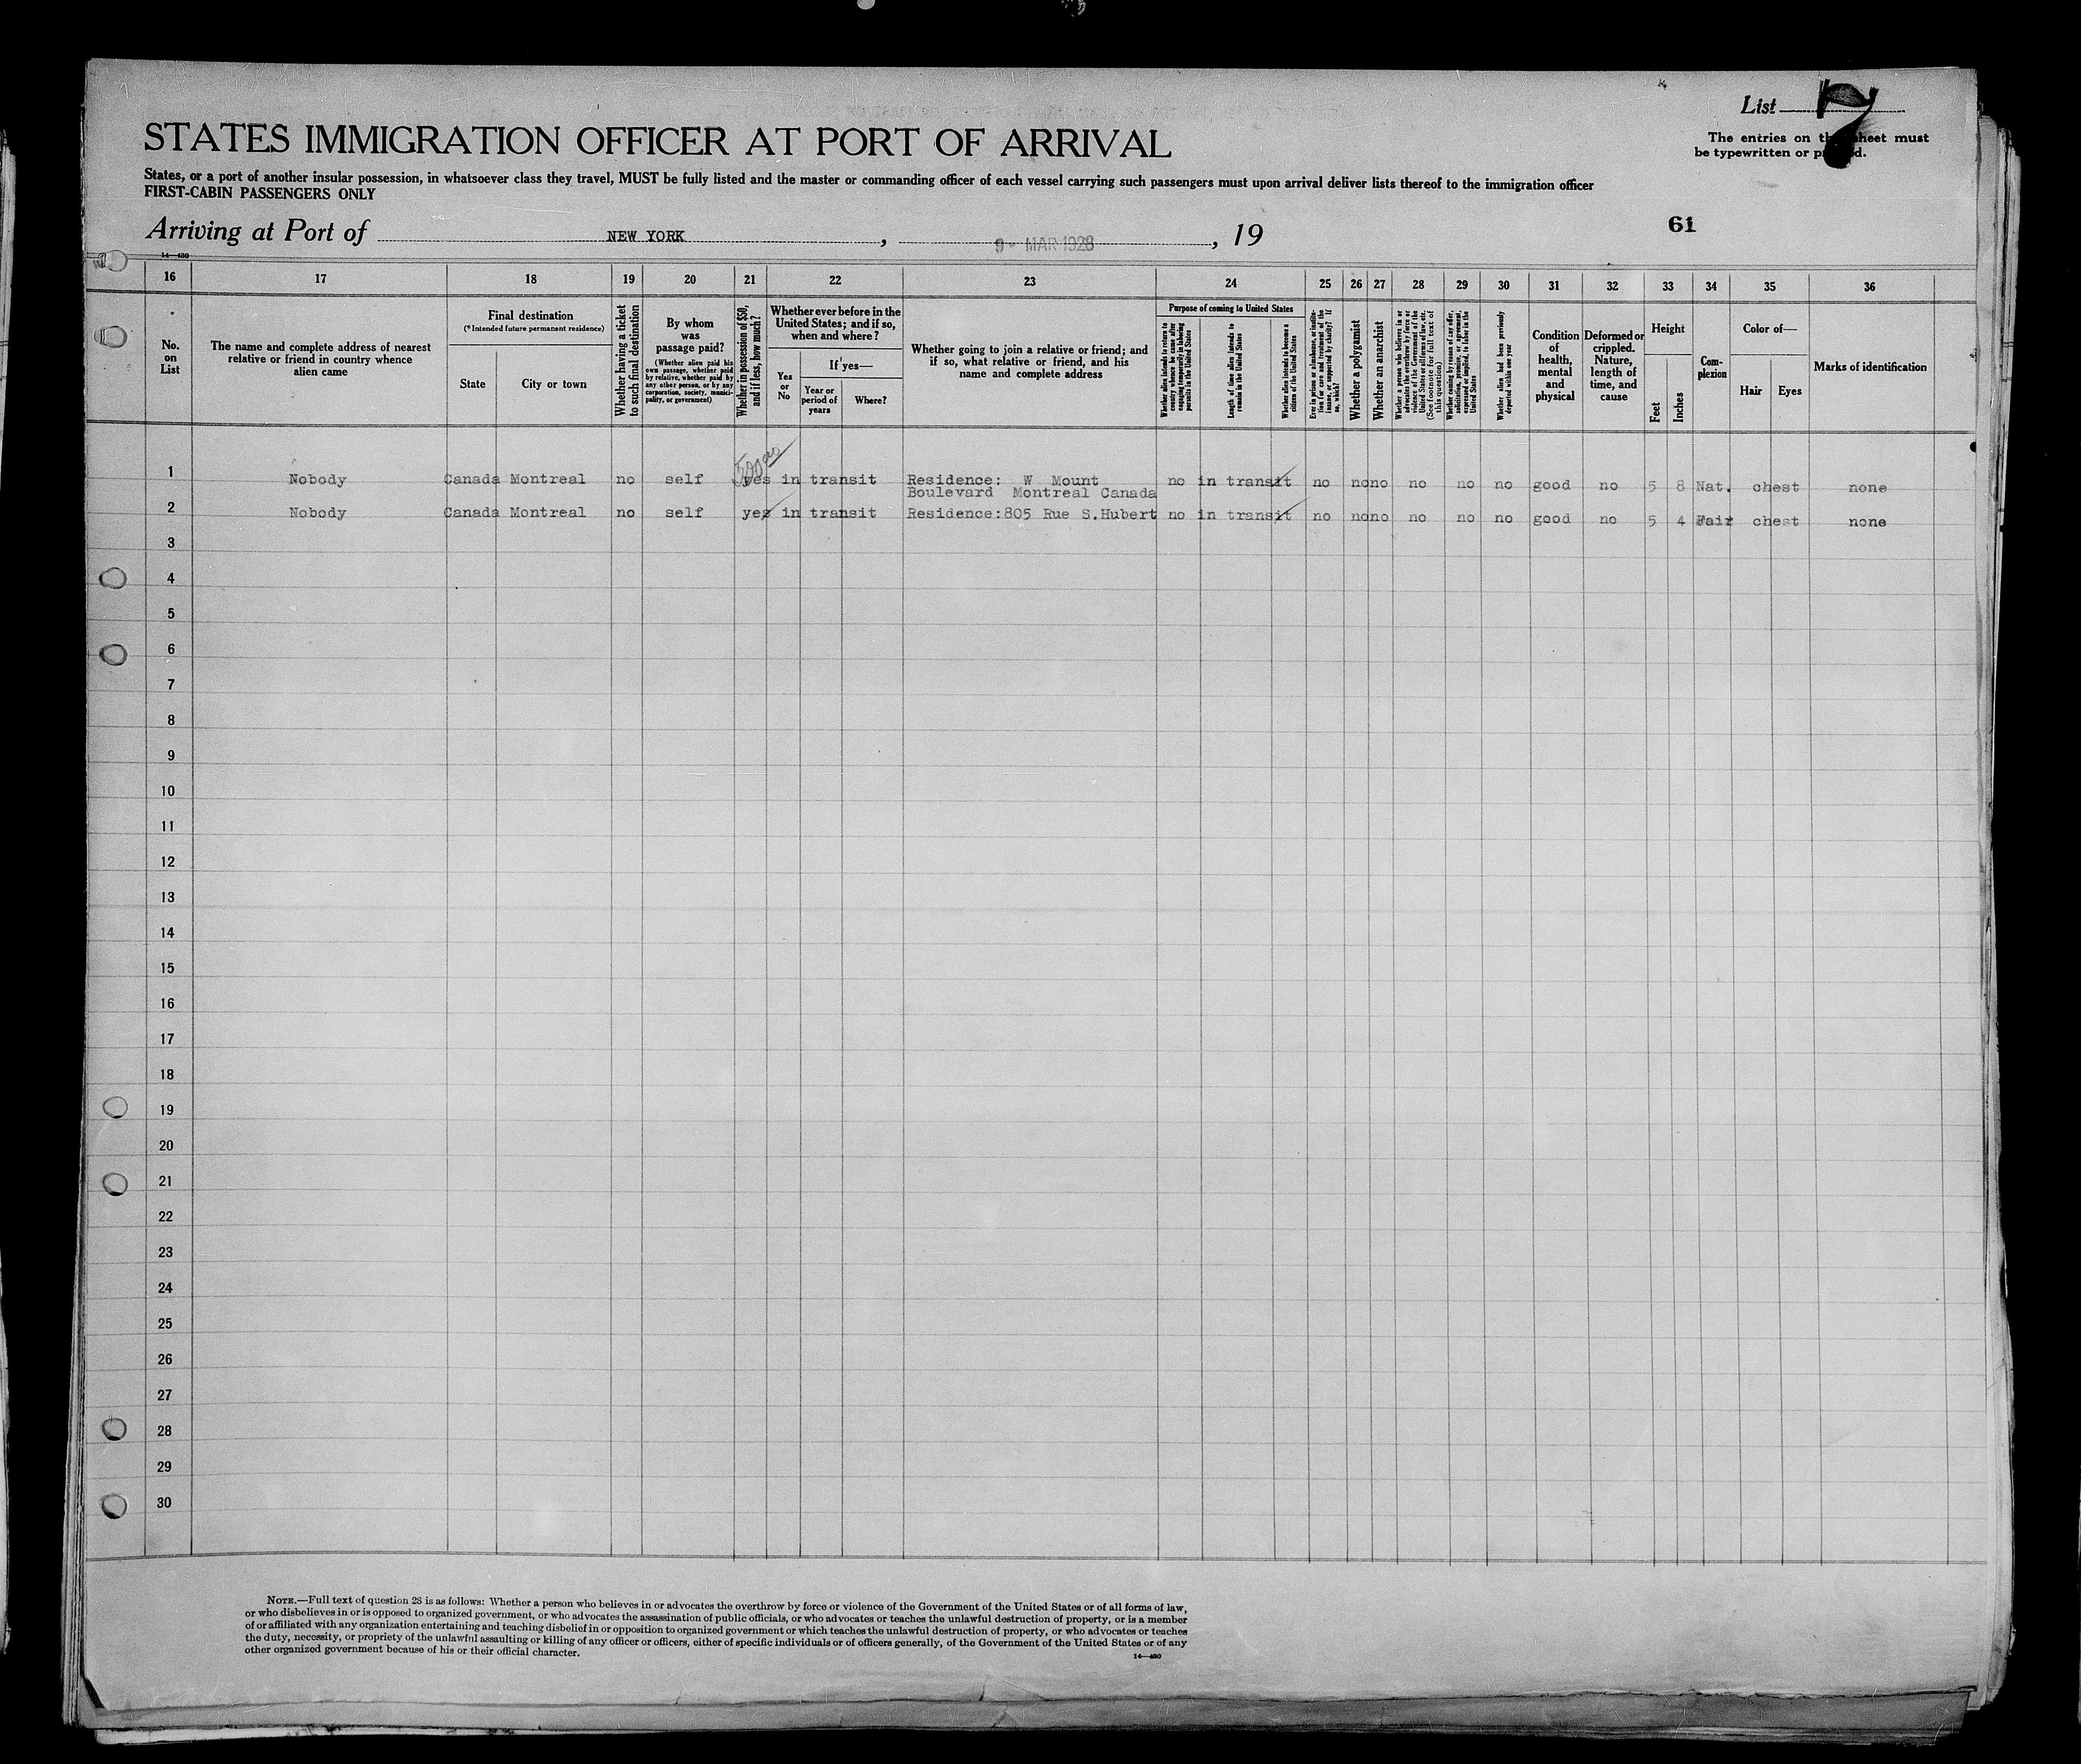 List 7
The entries on this sheet must
be typewritten or printed.
STATES IMMIGRATION OFFICER AT PORT OF ARRIVAL
States, or a port of another insular possession, in whatsoever class they travel, MUST be fully listed and the master or commanding officer of each vessel carrying such passengers must upon arrival deliver lists thereof to the immigration officer
FIRST-CABIN PASSENGERS ONLY
61
Arriving at Port of NEW YORK, 9 - MAR 1928, 19
14—430
16 17 18 19 20 21 22 23 24 25 26 27 28 29 30 31 32 33 34 35 36
No. on List
The name and complete address of nearest
relative or friend in country whence
alien came
Final destination
(*Intended future permanent residence)
State
City or town
Whether having a ticket
to such final destination
By whom
was
passage paid?
(Whether alien paid his
own passage, whether paid
by relative, whether paid by
any other person, or by any
corporation, society, munici-
pality, or government)
Whether in possession of $50,
and if less, how much?
Whether ever before in the
United States; and if so,
when and where?
Yes
or
No
If yes—
Year or
period of
years
Where?
Whether going to join a relative or friend; and
if so, what relative or friend, and his
name and complete address
Purpose of coming to United States
Whether alien intends to return to
country whence he came after
engaging temporarily in laboring
pursuits in the United States
Length of time alien intends to
remain in the United States
Whether alien intends to become a
citizen of the United States
Ever in prison or almshouse, or institu-
tion for care and treatment of the
insane, or supported by charity? If
so, which?
Whether a polygamist
Whether an anarchist
Whether a person who believes in or
advocates the overthrow by force or
violence of the Government of the
United States or all forms of law, etc.
(See footnote for full text of
this question)
Whether coming by reason of any offer,
solicitation, promise, or agreement,
expressed or implied, to labor in the
United States
Whether alien had been previously
deported within one year
Condition
of
health,
mental
and
physical
Deformed or
crippled.
Nature,
length of
time, and
cause
Height
Feet
Inches
Com-
plexion
Color of—
Hair
Eyes
Marks of identification
500 00
1 Nobody Canada Montreal no self yes in transit Residence: W Mount no in transit no no no no no no good no 5 8 Nat. chest none
Boulevard Montreal Canada
2 Nobody Canada Montreal no self yes in transit Residence:805 Rue S.Hubert no in transit no no no no no no good no 5 4 Fair chest none
3
4
5
6
7
8
9
10
11
12
13
14
15
16
17
18
19
20
21
22
23
24
25
26
27
28
29
30
NOTE.—Full text of question 28 is as follows: Whether a person who believes in or advocates the overthrow by force or violence of the Government of the United States or of all forms of law,
or who disbelieves in or is opposed to organized government, or who advocates the assassination of public officials, or who advocates or teaches the unlawful destruction of property, or is a member
of or affiliated with any organization entertaining and teaching disbelief in or opposition to organized government or which teaches the unlawful destruction of property, or who advocates or teaches
the duty, necessity, or propriety of the unlawful assaulting or killing of any officer or officers, either of specific individuals or of officers generally, of the Government of the United States or of any
other organized government because of his or their official character.
14—430